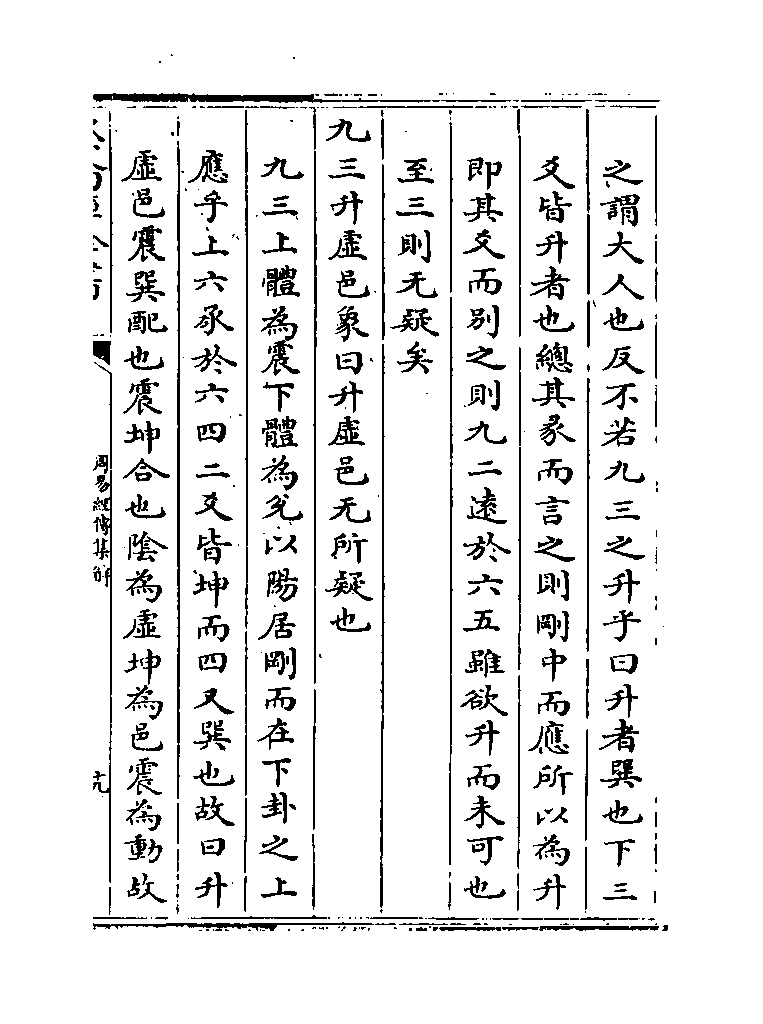 之謂大人也反不若九三之升乎曰升者巽也下三
爻皆升者也總其彖而言之則剛中而應所以為升
即其爻而別之則九二遠於六五雖欲升而未可也
至三則无疑矣
九三升虛邑象曰升虛邑无所疑也
九三上體為震下體為兌以陽居剛而在下卦之上
應乎上六承於六四二爻皆坤而四又巽也故曰升
虛邑震巽配也震坤合也陰為虛坤為邑震為動故
周易經傳集解